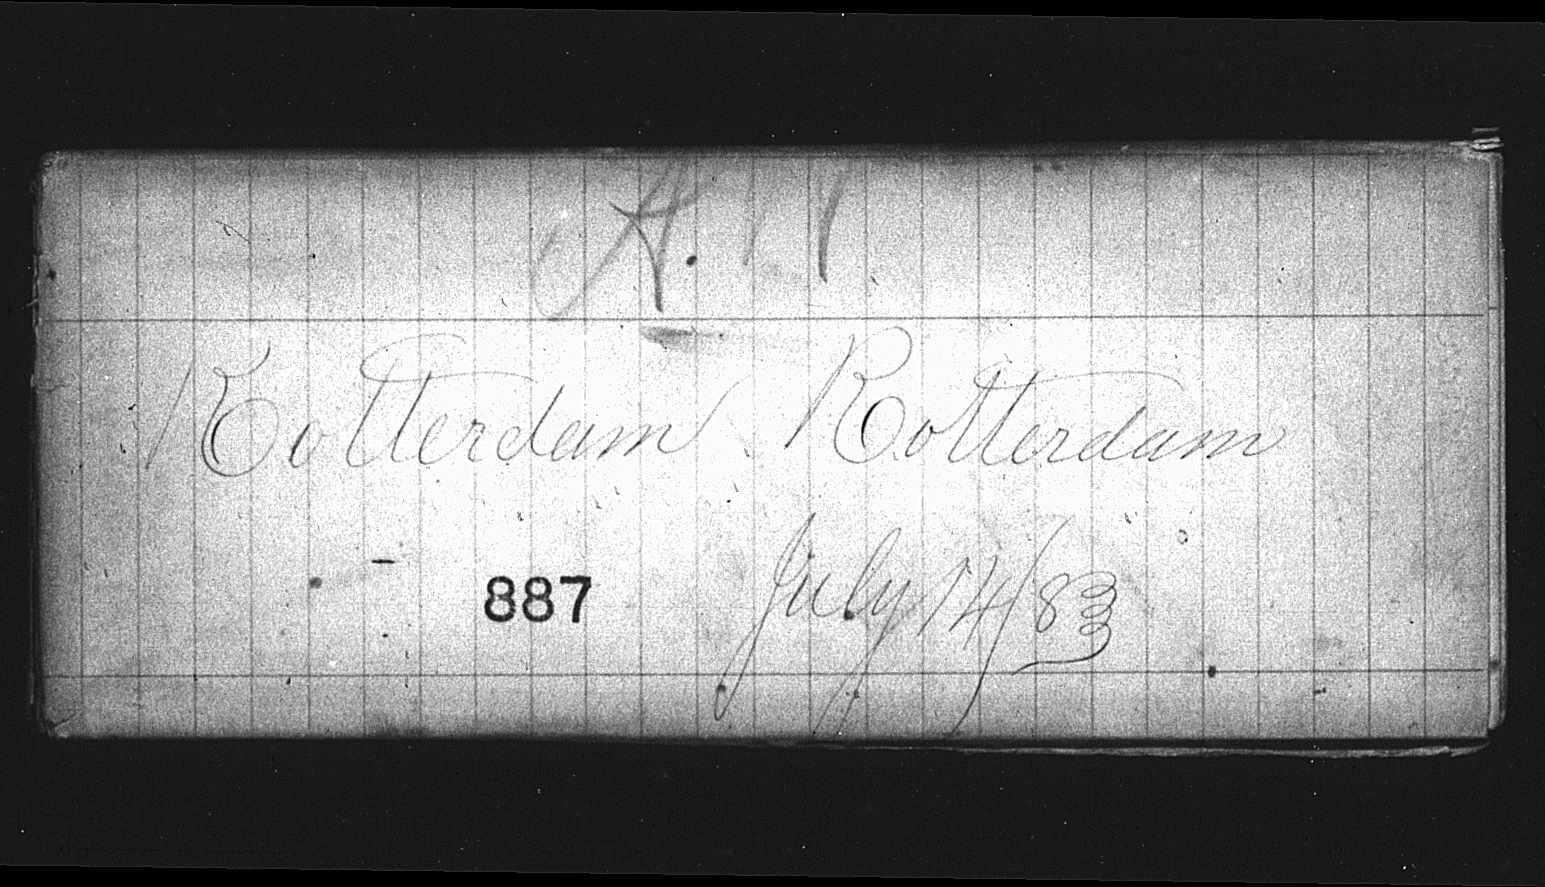 A. 11
Rotterdam Rotterdam
887 July 14/83